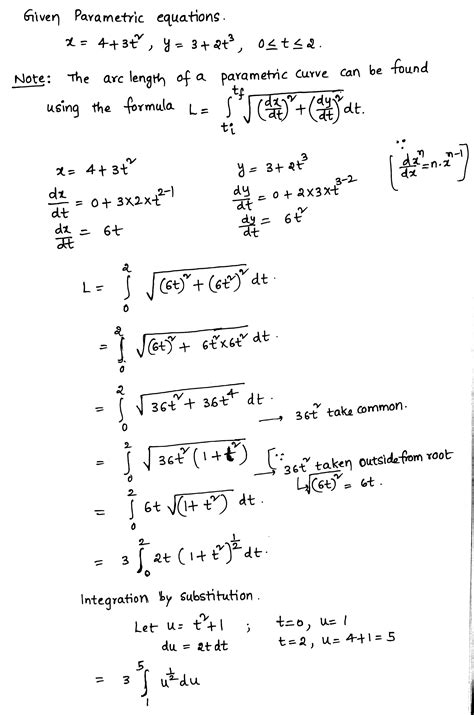 Given Parametric equations.
x = 4+3t², y = 3+2t³, 0≤t≤2.
Note: The arc length of a parametric curve can be found
using the formula L = ∫_{ti}^{tf} √((dx/dt)² + (dy/dt)²) dt.
x = 4+3t² y = 3+2t³ [∵ dxⁿ/dx = n·xⁿ⁻¹]
dx/dt = 0+3×2×t²⁻¹ dy/dt = 0+2×3×t³⁻²
dx/dt = 6t dy/dt = 6t²
L = ∫₀² √((6t)² + (6t²)²) dt.
= ∫₀² √((6t)² + 6t²×6t²) dt.
= ∫₀² √(36t² + 36t⁴) dt. → 36t² take common.
= ∫₀² √(36t²(1+t²)) → [∵ 36t² taken outside from root
↳ √(6t)² = 6t.
= ∫₀² 6t √(1+t²) dt.
= 3 ∫₀² 2t (1+t²)^{1/2} dt.
Integration by substitution.
Let u = t²+1 ; t=0, u=1
du = 2t dt t=2, u=4+1=5
= 3 ∫₁⁵ u^{1/2} du